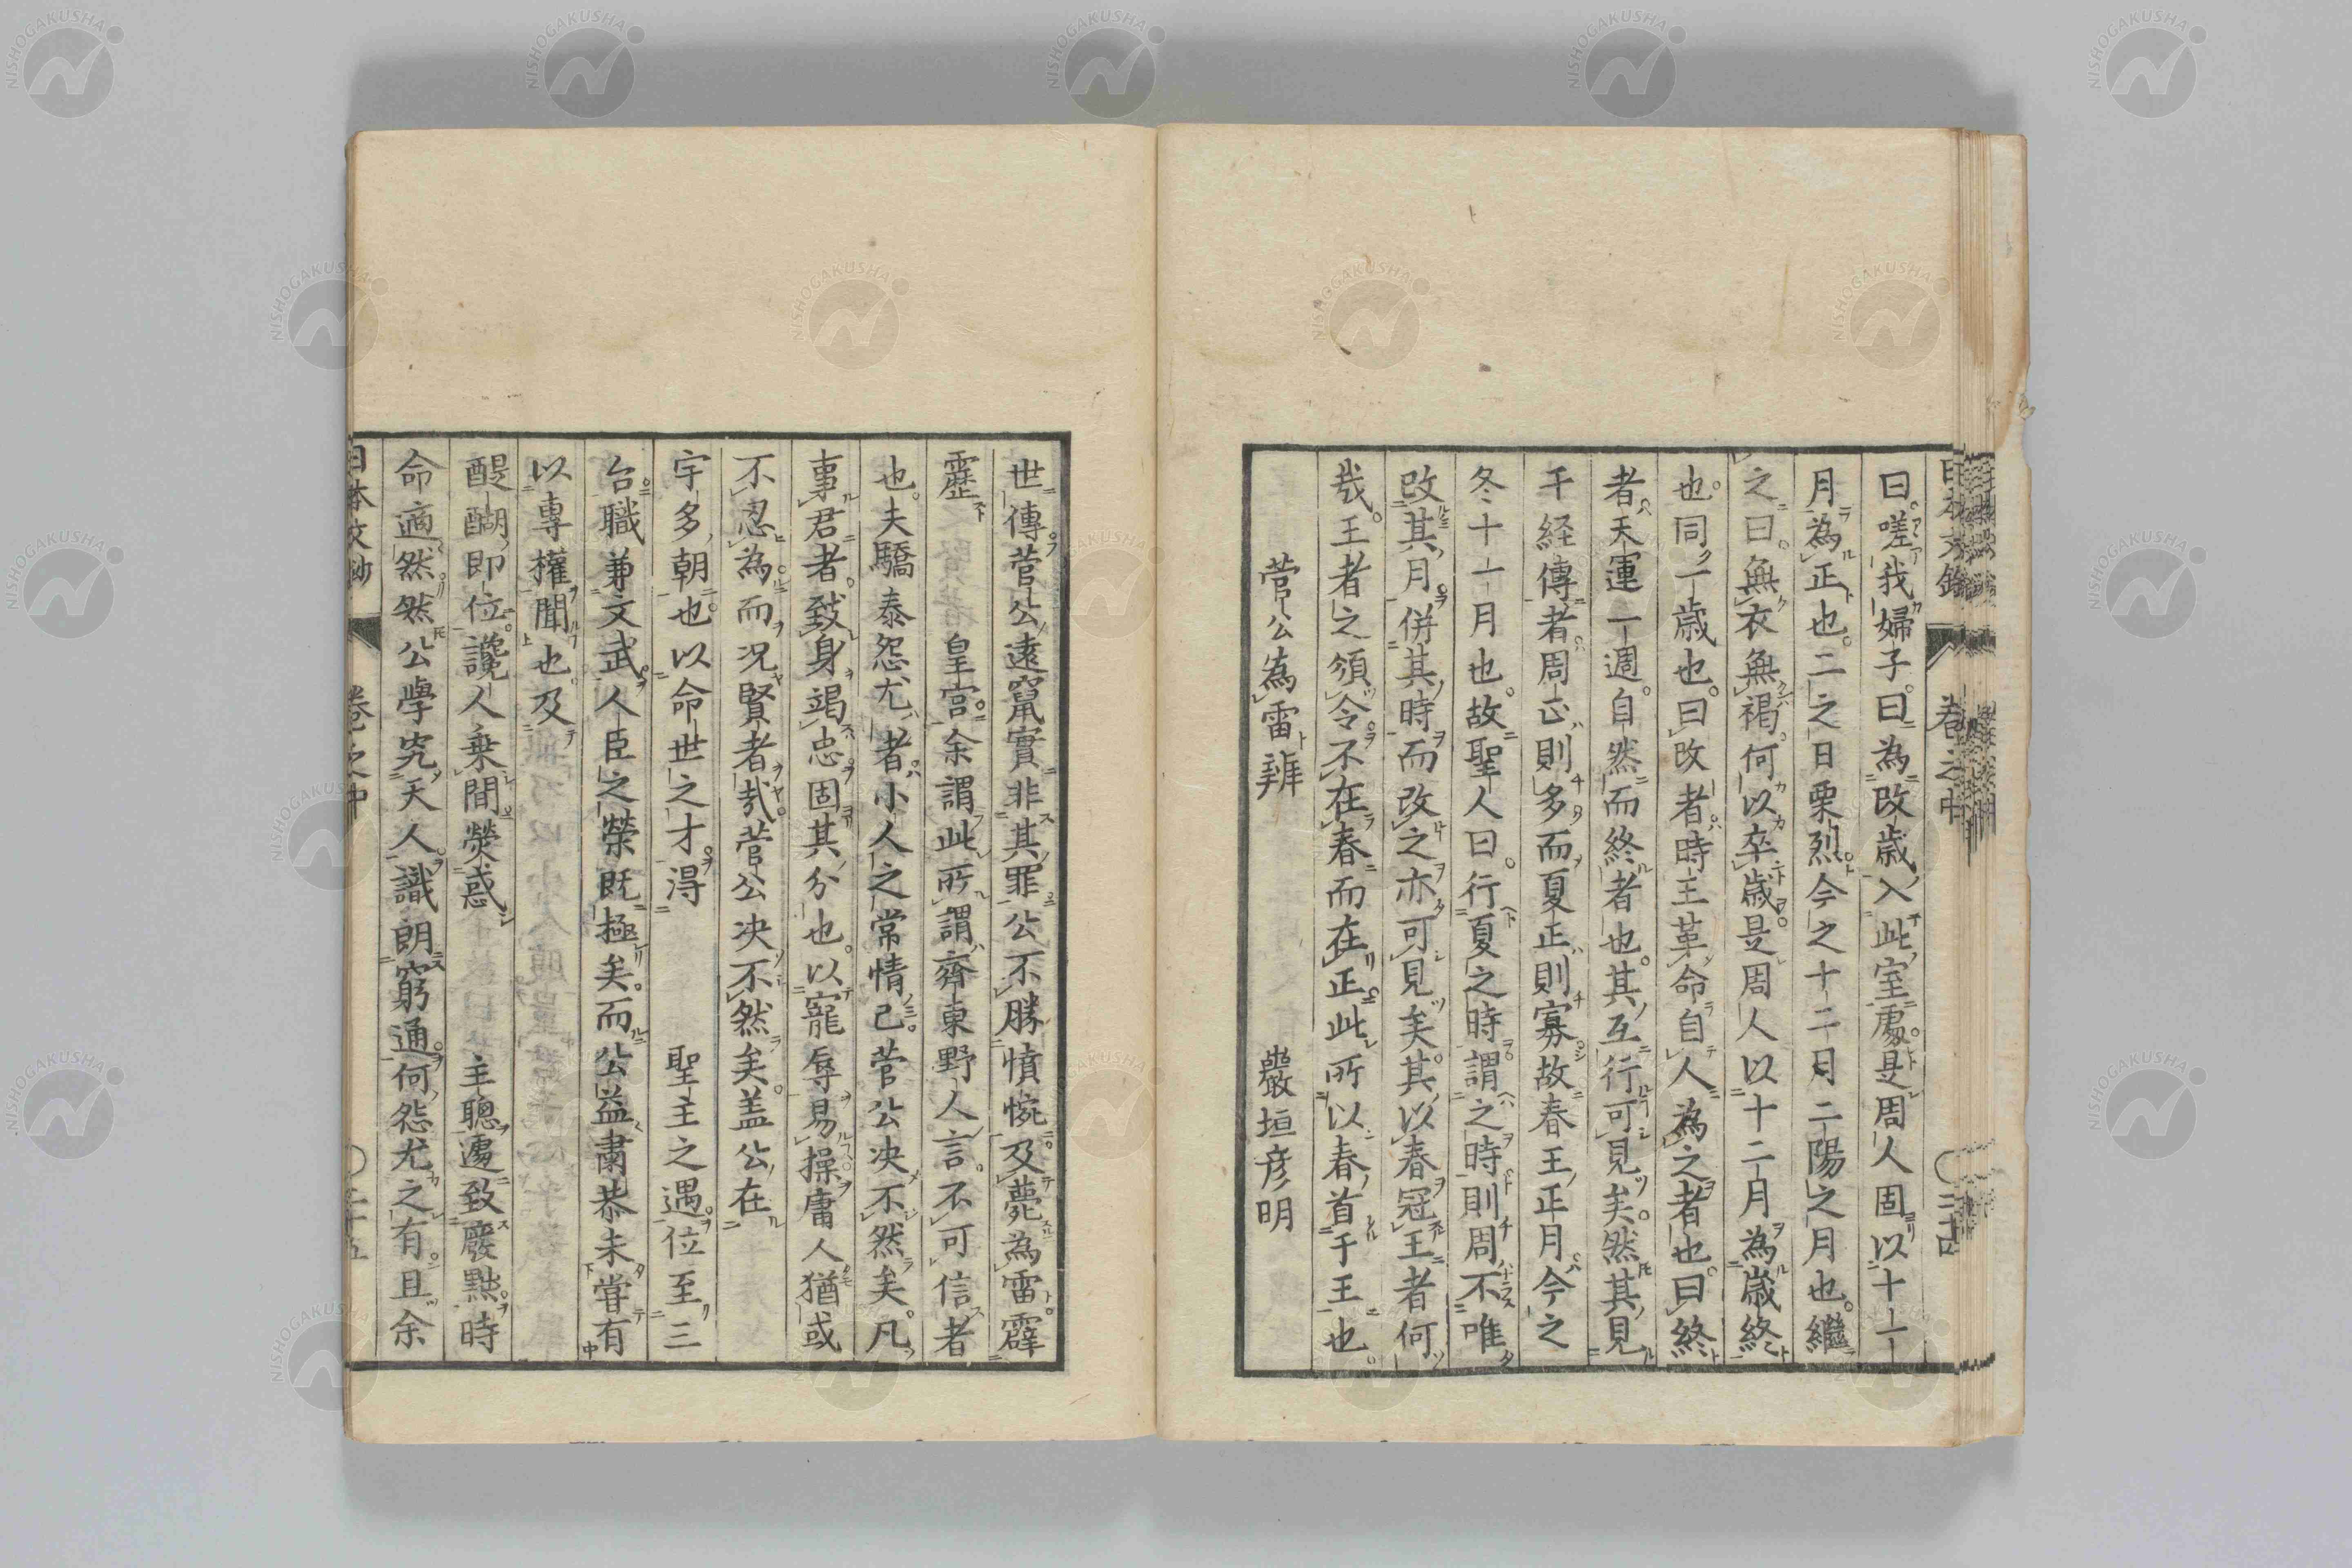 曰嗟我婦子曰為改歳入此室處是周人固以十一
月為正也二之日栗烈今之十二月二陽之月也繼
之曰無衣無褐何以卒歳是周人以十二月為歳終
也同一歳也曰改者時王革命自人為之者也曰終
者天運一週自然而終者也其互行可見矣然其見
于経傳者周正則多而夏正則寡故春王正月今之
冬十一月也故聖人曰行夏之時謂之時則周不唯
改其月併其時而改之亦可見矣其以春冠王者何
哉王者之頒令不在春而在正此所以春首于王也
菅公為雷辨 巖垣彦明
卷之中
世傳菅公遠竄實非其罪公不勝憤惋及薨為雷霹
靂 皇宮余謂此所謂齊東野人言不可信者
也夫驕泰怨尤者小人之常情已菅公决不然矣凡
事君者致身竭忠固其分也以寵辱易操庸人猶或
不忍為而况賢者哉菅公决不然矣盖公在
宇多朝也以命世之才得 聖主之遇位至三
台職兼文武人臣之榮既極矣而公益肅恭未嘗有
以專權聞也及
醍醐即位讒人乗間熒惑 主聰遽致廢黜時
命適然然公學究天人識朗窮通何怨尤之有且余
卷之中
NISHOGAKUSHA